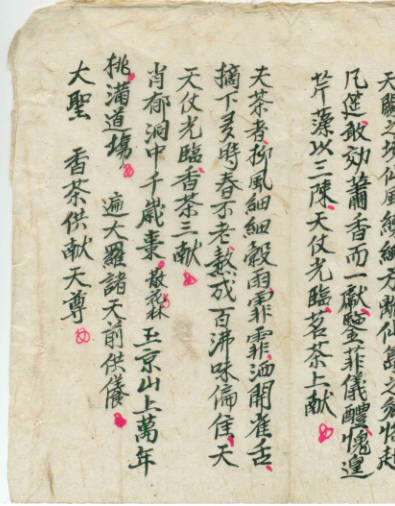 天臨之坊仙風
凡筵敢効蕭香而一獻鑒菲儀醴愧湟
芹藻以三陳天仗光臨茗茶上献
夫茶者柳風細細穀雨霏霏洒開雀舌
摘下多時春不老熬成百沸味偏佳天
天仗光臨香茶三献
肖郁洞中千歲棗散花林玉京山上萬年
桃滿道場 遍大羅諸天前供儀
大聖 香茶供献天尊